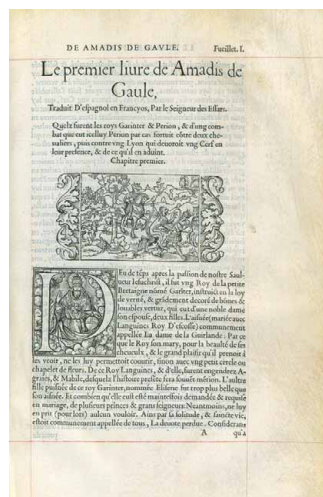 DE AMADIS DE GAVLE. Fueillet. I.
Le premier liure de Amadis de
Gaule,
Traduit D'espagnol en Françoys, Par le Seigneur des Essars.
Quelz furent les roys Garinter & Perion, & d'ung com-
bat que eut icelluy Perion par cas fortuit cõtre deux che-
ualiers, puis contre vng Lyon qui deuoroit vng Cerf en
leur presence, & de ce qu'il en aduint.
Chapitre premier.
PEu de tẽps apres la passion de nostre Saul-
ueur Iesuchrist, il fut vng Roy de la petite
Bretaigne nõmé Garĩter, instruict en la loy
de verité, & grãdement decoré de bõnes &
louables vertuz, qui eut d'une noble dame
son espouse, deux filles. L'aisnée (mariée auec
Languines Roy D'escosse) communement
appellée La dame de la Guirlande: Par ce
que le Roy son mary, pour la beaulté de ses
cheueulx, & le grand plaisir qu'il prenoit à
les veoir, ne les luy permettoit couurir, sinon auec vng petit cercle ou
chapelet de fleurs. De ce Roy Languines, & d'elle, furent engendrez A-
graies, & Mabile, desquelz l'histoire presẽte fera souuẽt mẽtion. L'aultre
fille puisnée de ce roy Garinter, nommée Elisene fut trop plus belle que
son aisnée. Et combien qu'elle eust esté maintesfois demandée & requise
en mariage, de plusieurs princes & grans seigneurs: Neantmoins, ne luy
en prit (pour lors) aulcun vouloir. Ains par sa solitude, & saincte vie,
estoit communement appellée de tous, La deuote perdue. Considerans
A qu'a